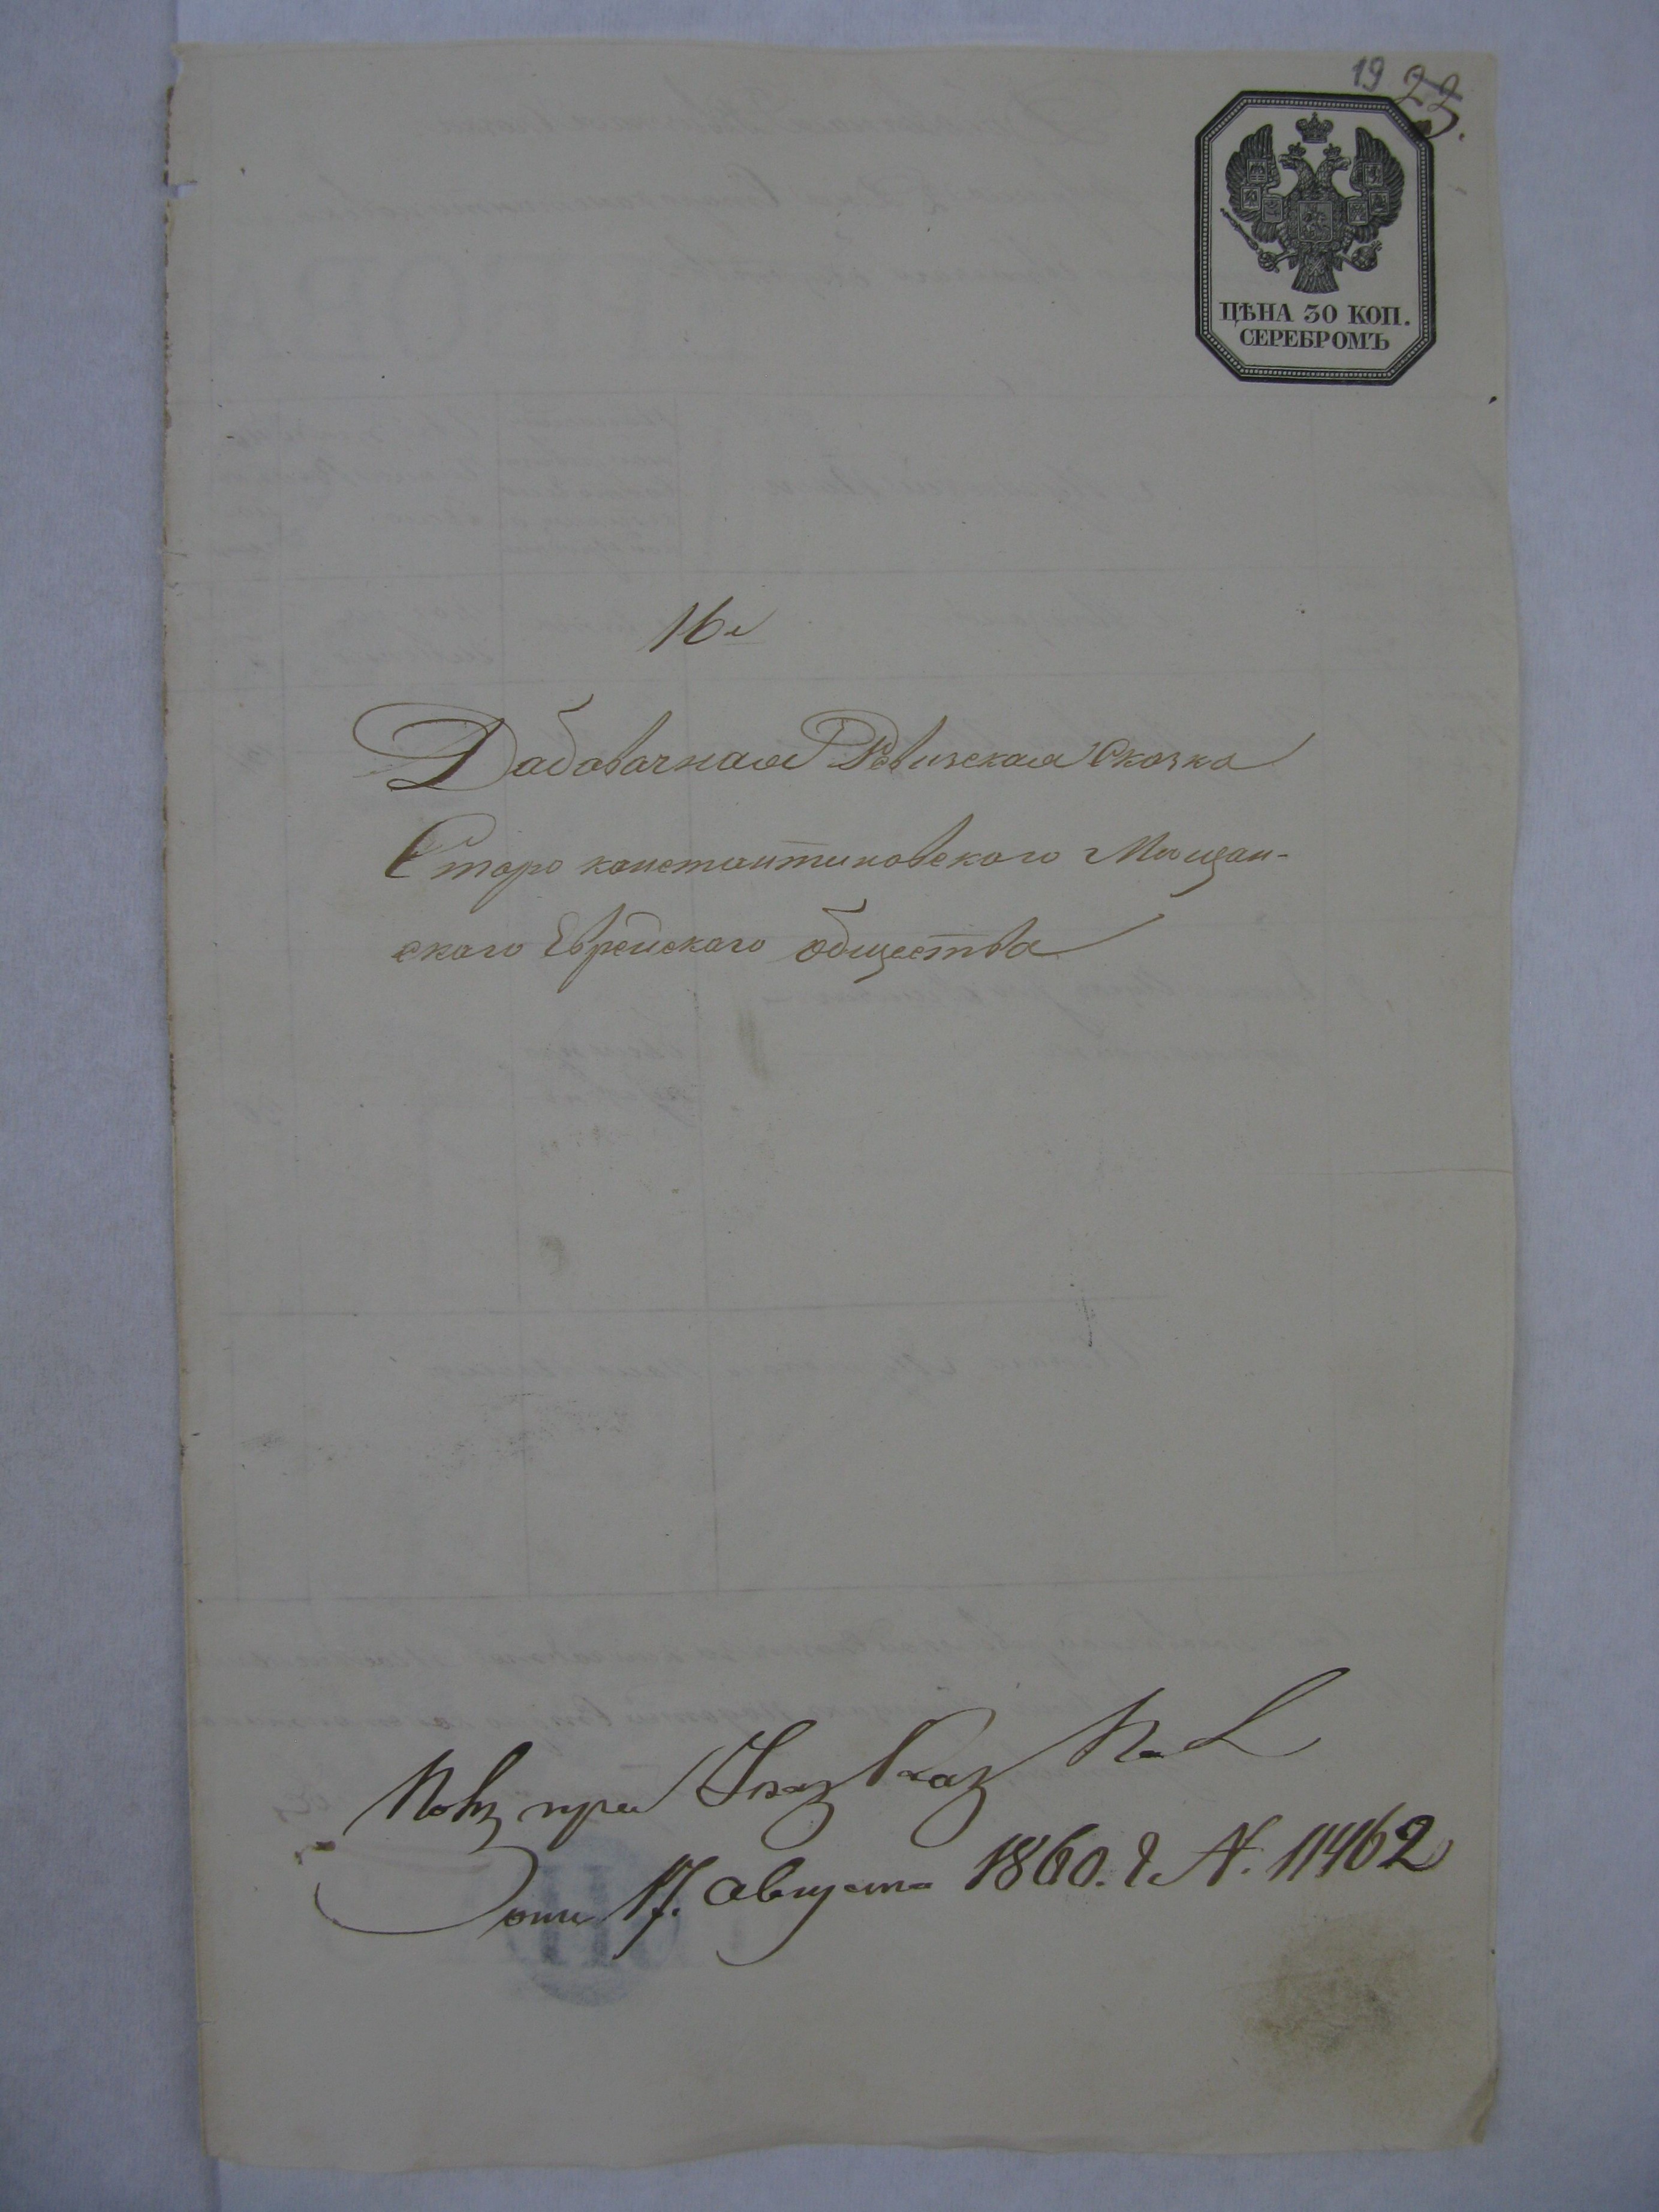 19 22
ЦѢНА 30 КОП.
СЕРЕБРОМЪ
16е
Дабовачная Ревизская Сказка
Старо константиновского Мѣщан-
ского Еврейского общества
при Указ Каз Пал
17. августа 1860. г. N. 11462